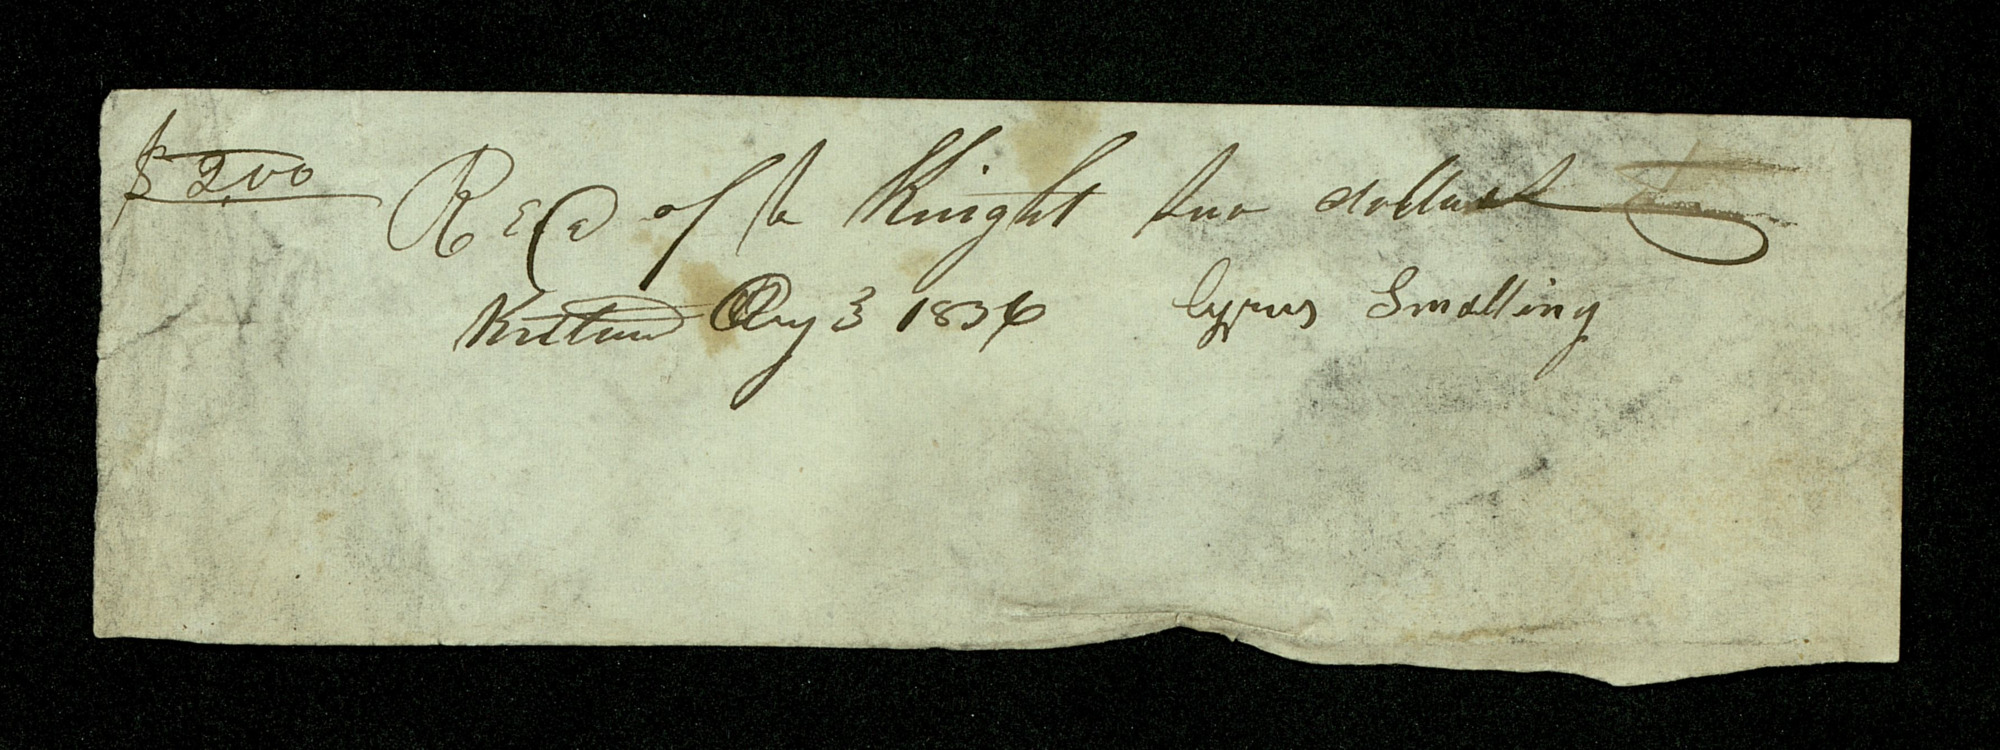 $2.00 Recd of V Knight two dollars
Kirtland Aug 3 1836 Cyrus Smalling